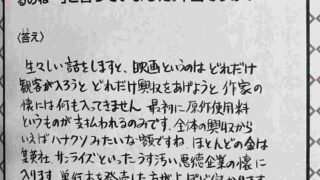 〈答え〉
生々しい話をしますと、映画というのはどれだけ
観客が入ろうと どれだけ興収をあげようと 作家の
懐には何も入ってきません 最初に原作使用料
というものが支払われるのみです。全体の興収から
いえばハナクソみたいな額ですね。ほとんどの金は
集英社、サンライズといったうす汚い悪徳企業の懐に
入ります